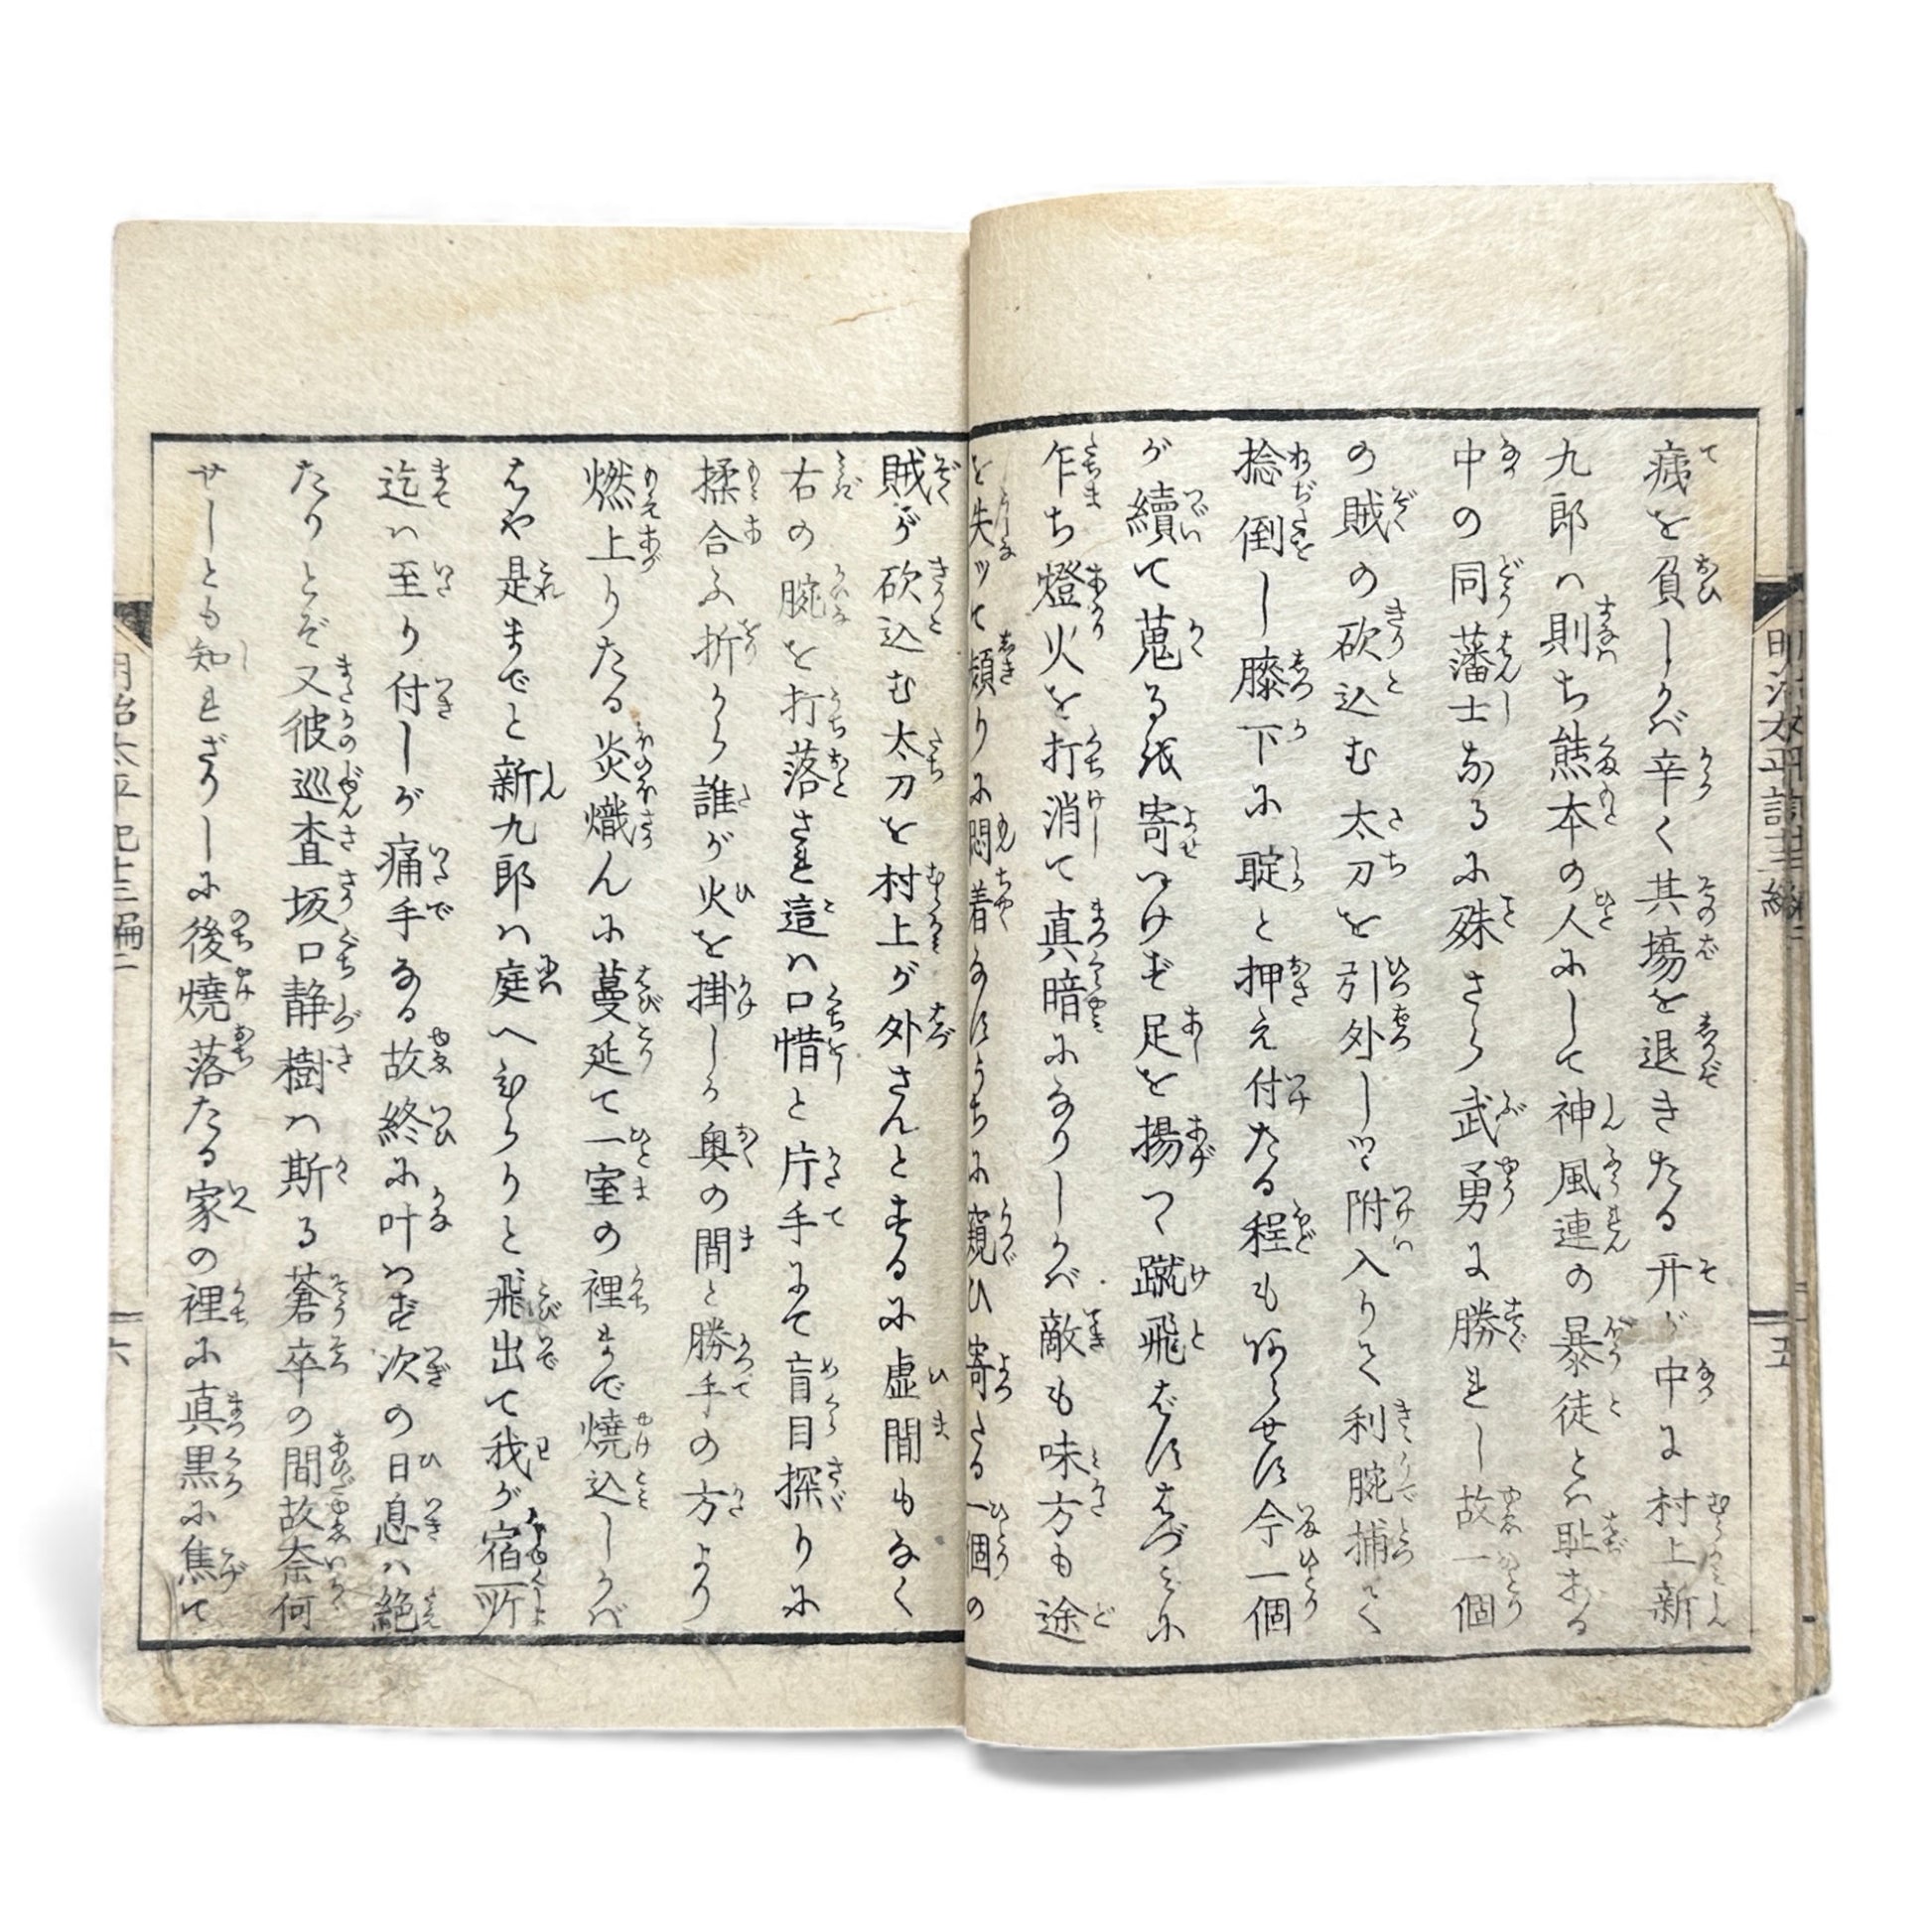 痍を負しかバ辛く其塲を退きたる开が中に村上新
九郎ハ則ち熊本の人にして神風連の暴徒とハ耻ある
中の同藩士なるに殊さら武勇に勝れし故一個
の賊の砍込む太刀を引外しツヽ附入りて利腕捕て
捻倒し膝下に聢と押え付たる程もあらせず今一個
が續て蒐るを寄つけず足を揚て蹴飛ばすはづミに
乍ち燈火を打消て真暗になりしかバ敵も味方も途
を失ッて頻りに悶着なすうちに窺ひ寄たる一個の
賊が砍込む太刀を村上が外さんとするに虚間もなく
右の腕を打落され這ハ口惜と片手にて盲目探りに
揉合ふ折から誰が火を掛しか奥の間と勝手の方より
燃上りたる炎熾んに蔓延て一室の裡まで焼込しかバ
はや是までと新九郎ハ庭へひらりと飛出て我が宿所
迄ハ至り付しが痛手なる故終に叶ハず次の日息ハ絶
たりとぞ又彼巡査坂口静樹ハ斯る蒼卒の間故奈何
せしとも知れざりしに後焼落たる家の裡に真黒に焦て
明治太平記十三編二
六
五